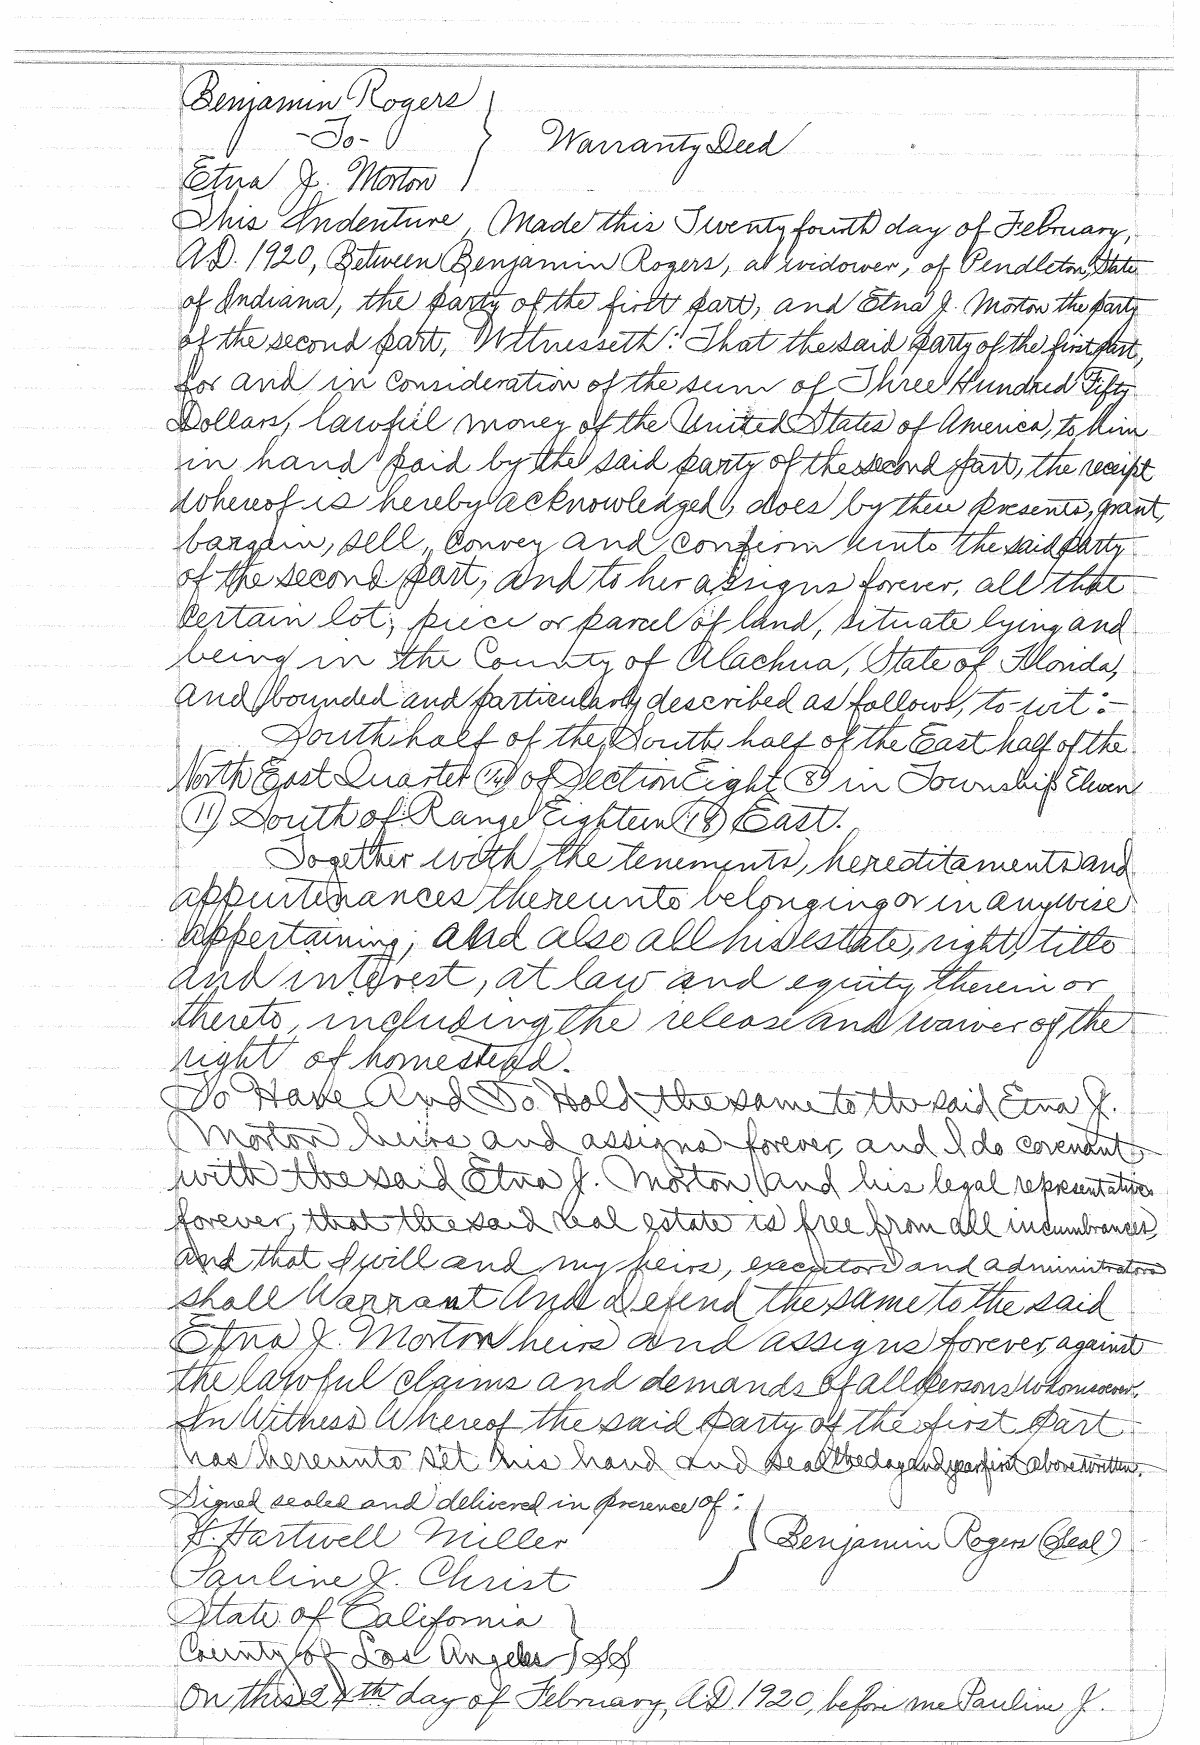 Benjamin Rogers
-To-
Warranty Deed
Etna J. Morton
This Indenture, Made this Twenty fourth day of February,
A.D. 1920, Between Benjamin Rogers, a widower, of Pendleton, State
of Indiana, the party of the first part, and Etna J. Morton the party
of the second part, Witnesseth: That the said party of the first part,
for and in consideration of the sum of Three Hundred Fifty
Dollars, lawful money of the United States of America, to him
in hand paid by the said party of the second part, the receipt
whereof is hereby acknowledged, does by these presents, grant,
bargain, sell, convey and confirm unto the said party
of the second part, and to her assigns forever, all that
certain lot, piece or parcel of land, situate lying and
being in the County of Alachua, State of Florida,
and bounded and particularly described as follows, to-wit:-
South half of the South half of the East half of the
North East Quarter (1/4) of Section Eight (8) in Township Eleven
(11) South of Range Eighteen (18) East.
Together with the tenements, hereditaments and
appurtenances thereunto belonging or in anywise
appertaining, and also all his estate, right, title
and interest, at law and equity therein or
thereto, including the release and waiver of the
right of homestead.
To Have And To Hold the same to the said Etna J.
Morton heirs and assigns forever, and I do covenant
with the said Etna J. Morton and his legal representatives
forever, that the said real estate is free from all incumbrances,
and that I will and my heirs, executors and administrators
shall Warrant And Defend the same to the said
Etna J. Morton heirs and assigns forever, against
the lawful claims and demands of all persons whomsoever.
In Witness Whereof the said party of the first part
has hereunto set his hand and seal the day and year first above written.
Signed sealed and delivered in presence of:
H. Hartwell Miller
Benjamin Rogers (Seal)
Pauline J. Christ
State of California
County of Los Angeles } SS
On this 24th day of February, A.D. 1920, before me Pauline J.